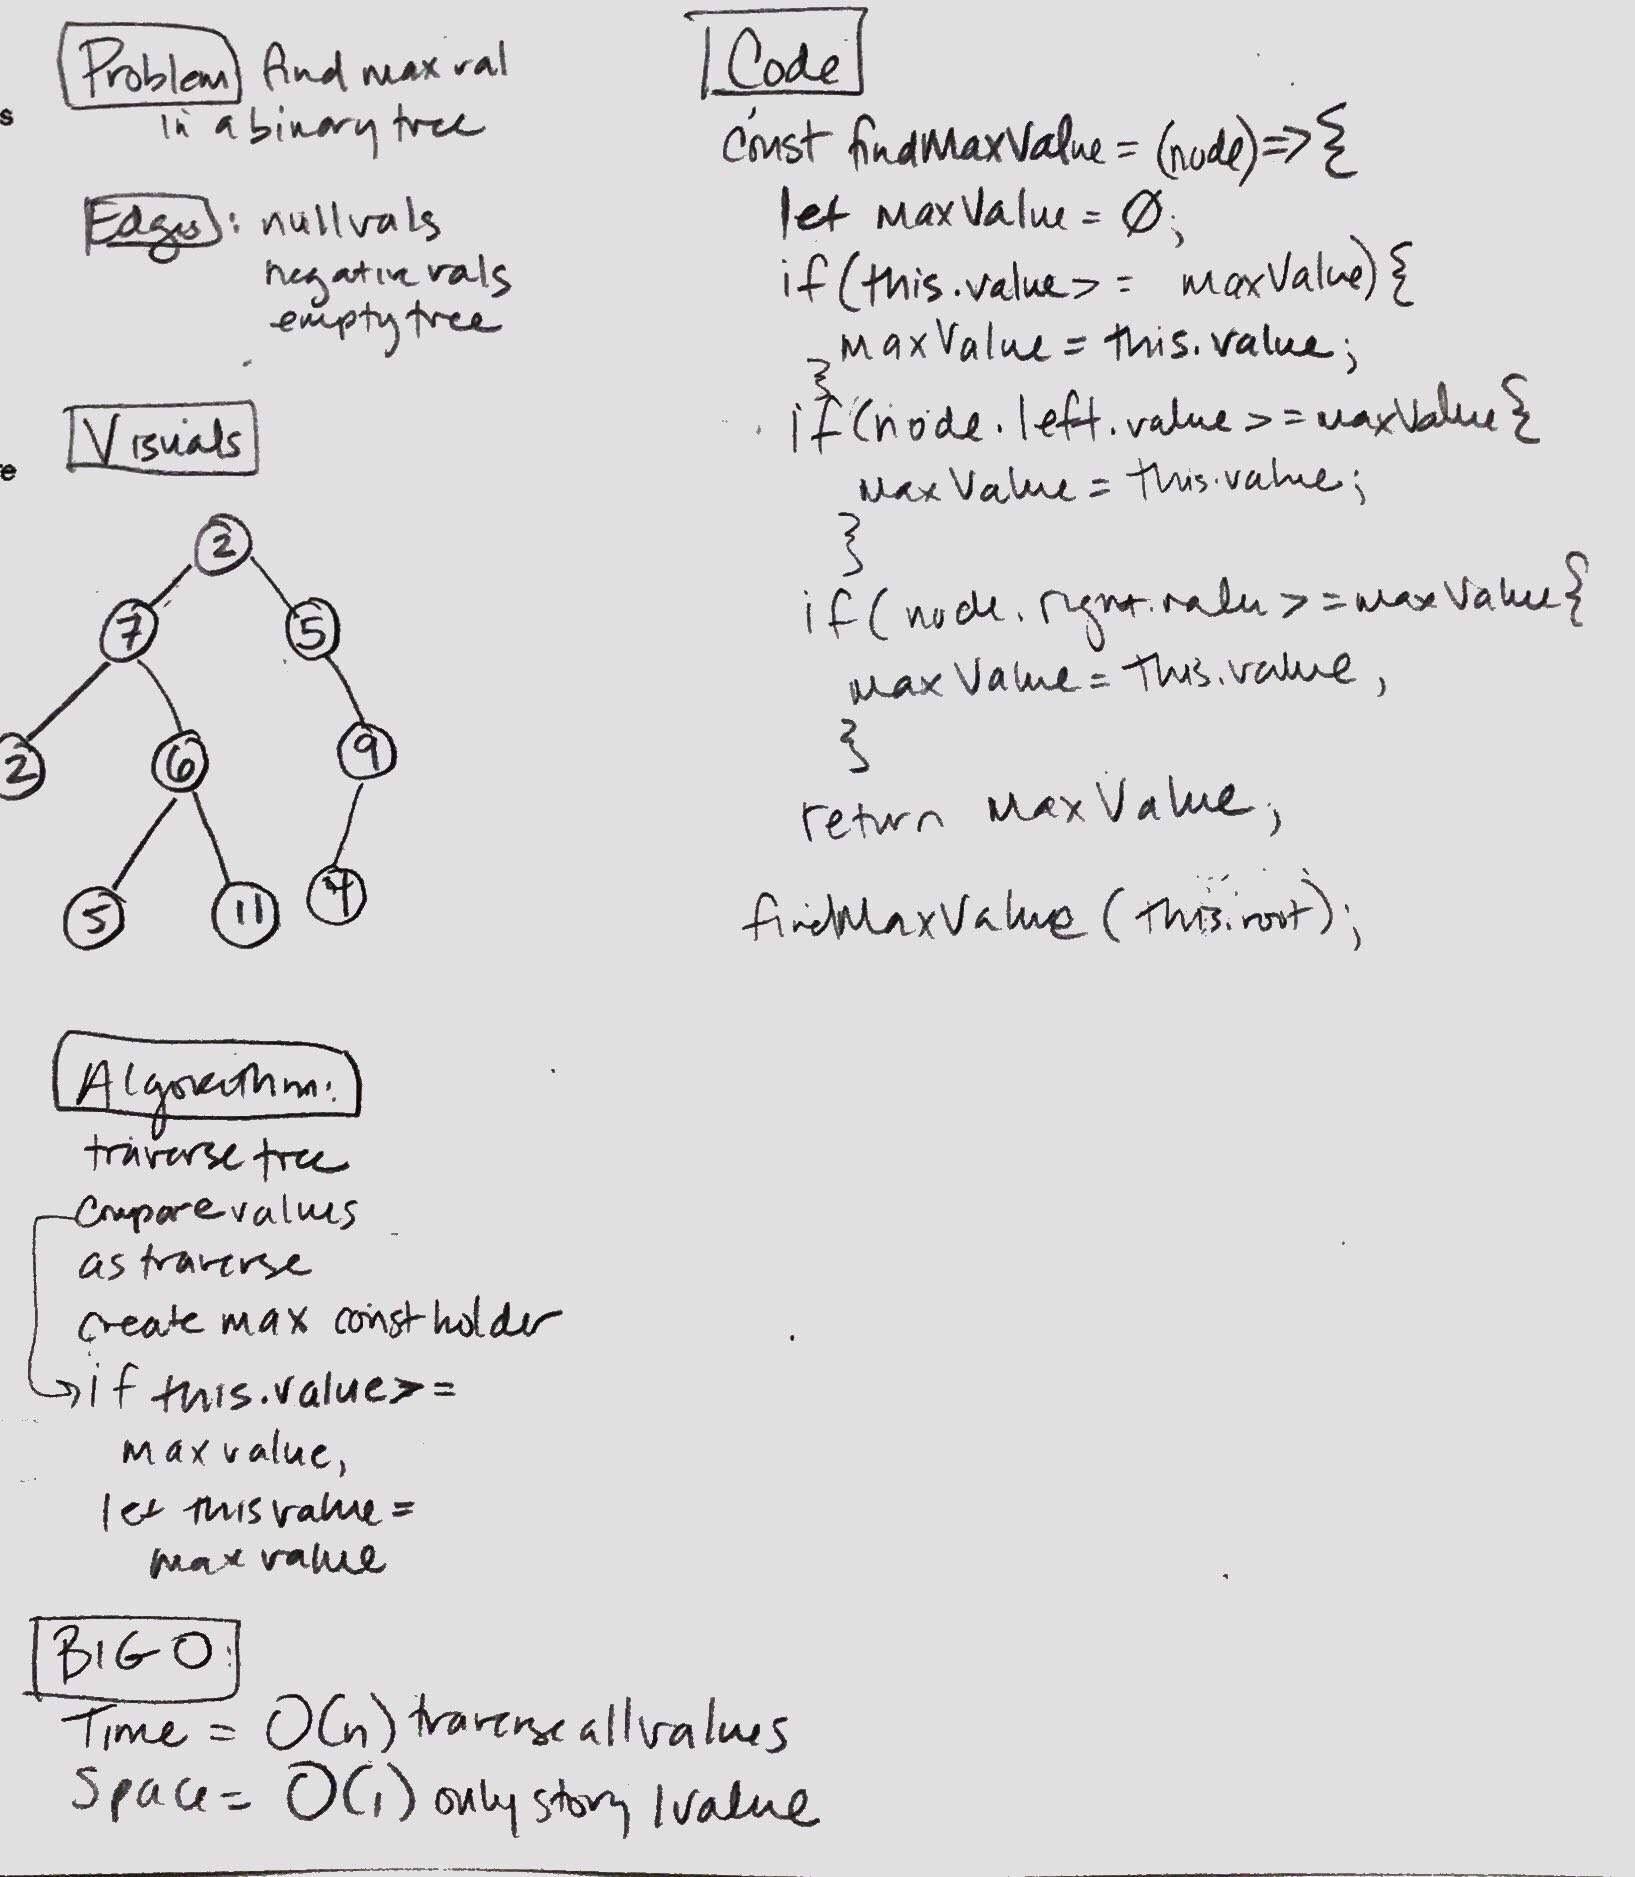 Problem find max val
in a binary tree
s
Edges: null vals
negative vals
empty tree
Visuals
re
2
7 5
2 6 9
5 11 4
Algorithm:
traverse tree
compare values
as traverse
create max const holder
if this.value >=
max value,
let this value =
max value
BIG O:
Time = O(n) traverse all values
Space = O(1) only story 1 value
Code
const findMaxValue = (node) => {
let maxValue = Ø;
if (this.value >= maxValue) {
maxValue = this.value;
}
if (node.left.value >= maxValue {
maxValue = this.value;
}
if (node.right.value >= maxValue {
maxValue = this.value,
}
return maxValue;
findMaxValue (this.root);